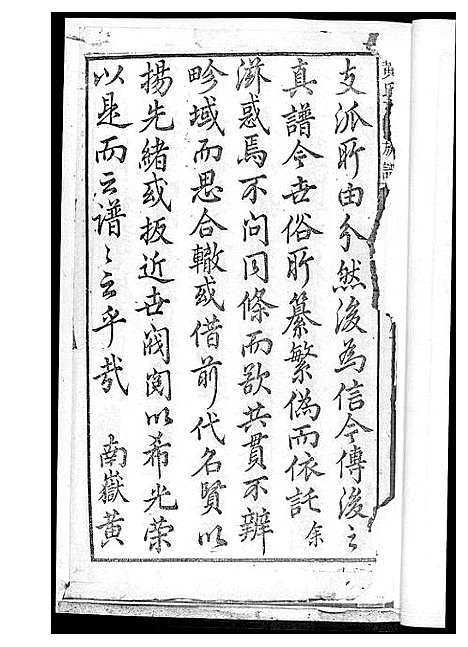 支派所由分然後為信今傳後之
真譜令世俗所纂繁偽而依託余
滋惑焉不問同條而欲共貫不辨
畛域而思合轍或借前代名賢以
揚先緒或扳近世閥閱以希光榮
以是而云譜譜云乎哉　南嶽黃